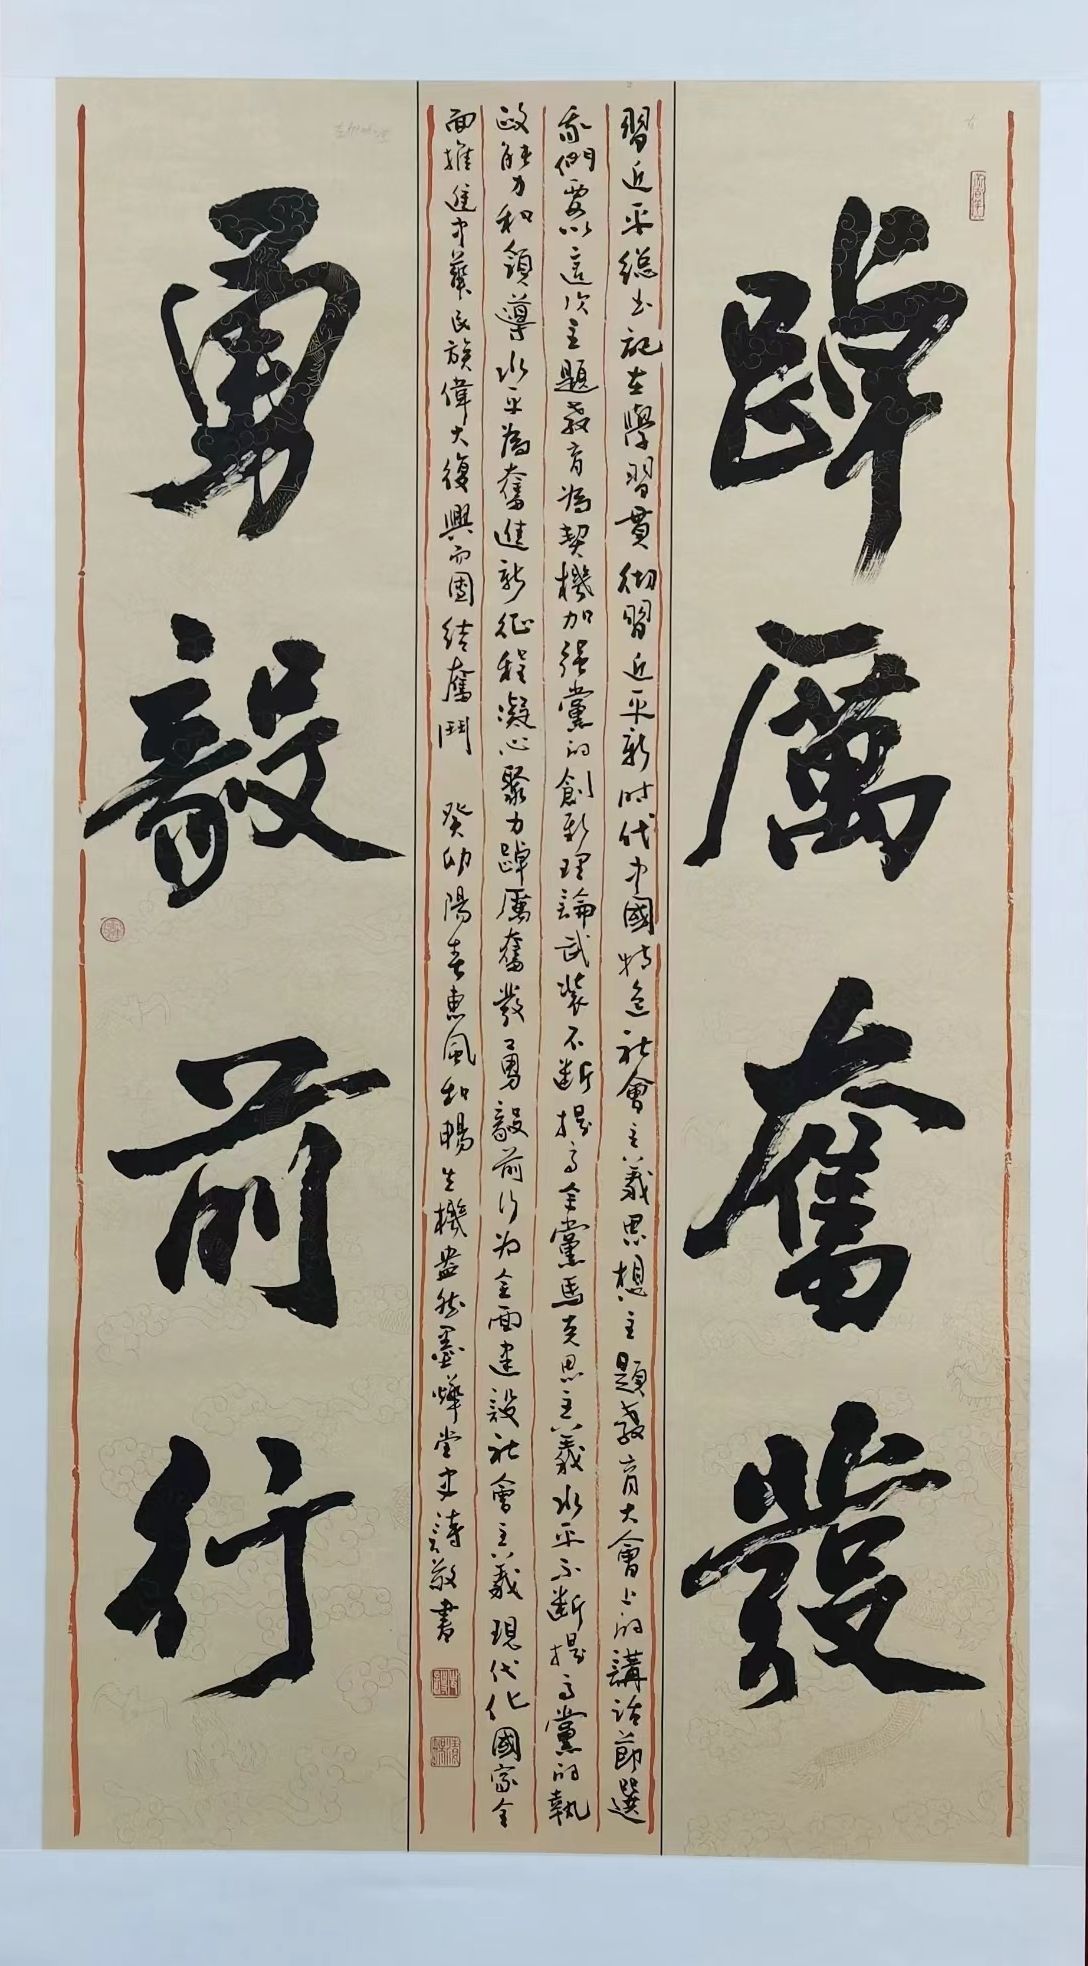 踔厲奮發
習近平總书記在學習貫彻習近平新时代中國特色社會主義思想主題教育大會上的講話節選
我們要以這次主題教育為契機加强黨的創新理論武装不断提高全黨馬克思主義水平不断提高黨的執
政能力和領導水平為奮進新征程凝心聚力踔厲奮發勇毅前行为全面建設社會主義現代化國家全
面推進中華民族偉大復興而團结奮鬥 癸卯陽春惠風和暢生機盎然墨燁堂史詩敬書
勇毅前行